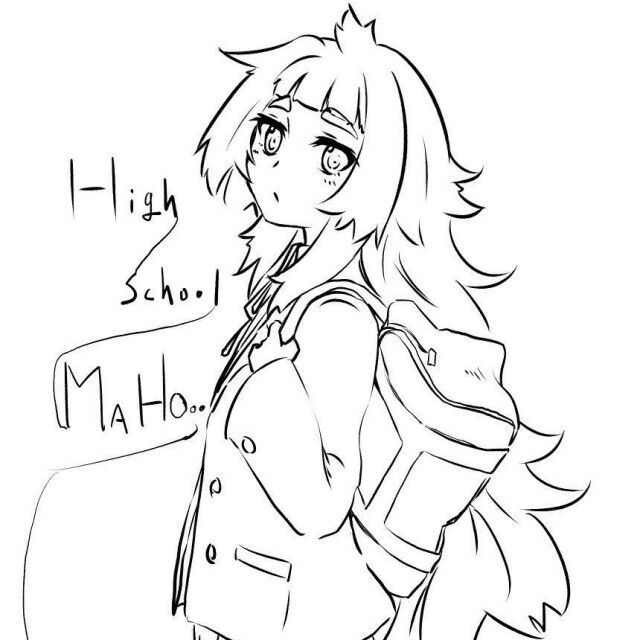 High
School
MAHO..